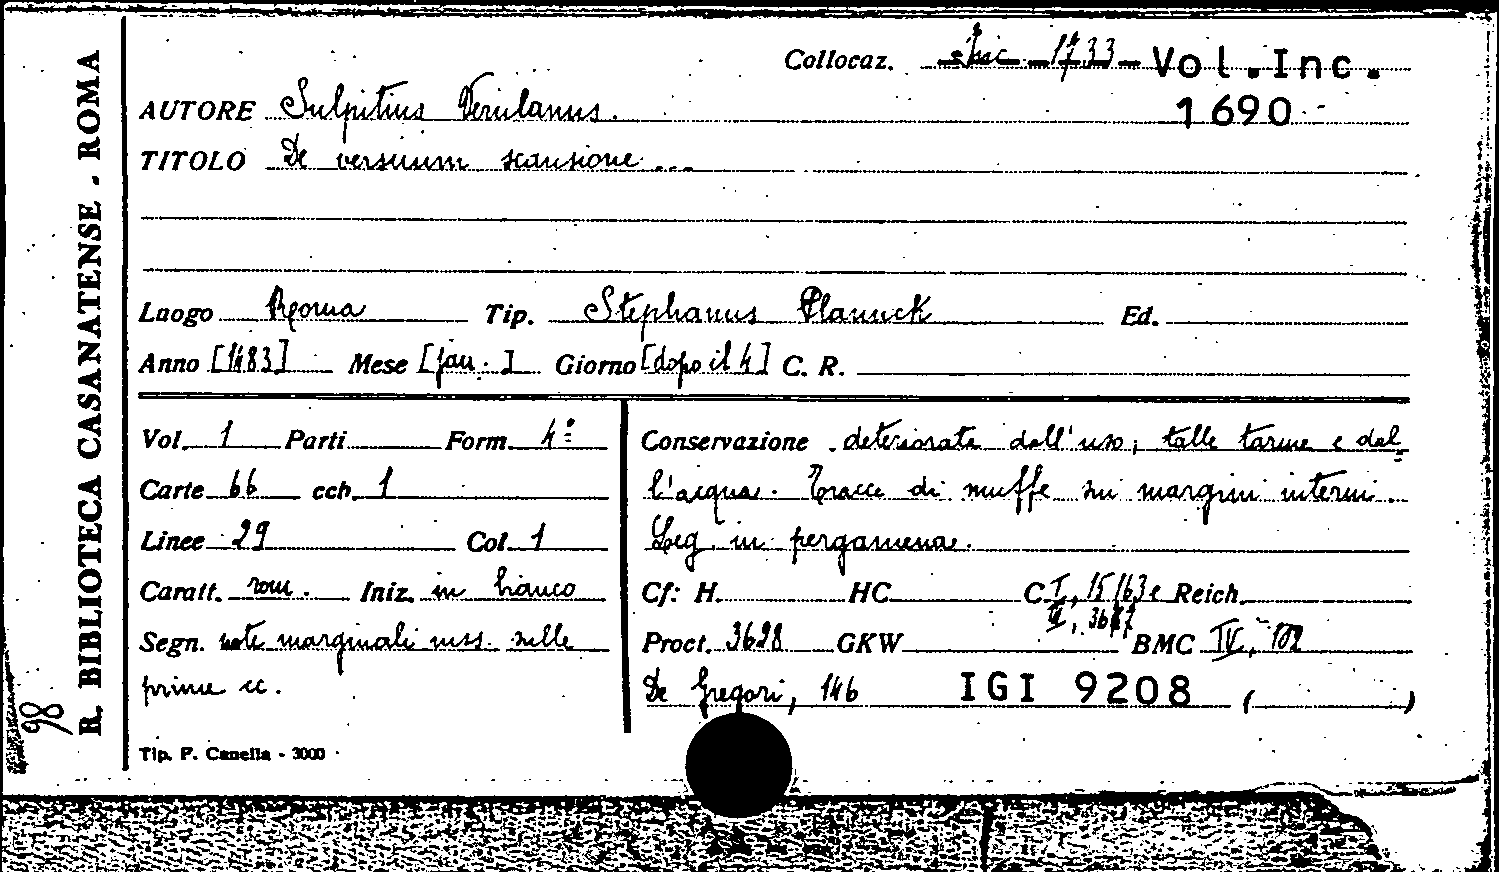 R. BIBLIOTECA CASANATENSE - ROMA
98
Collocaz. Inc 1733 Vol.Inc.
1690
AUTORE Sulpitius Verulanus.
TITOLO De versuum scansione ...
Luogo Roma Tip. Stephanus Plannck Ed.
Anno [1483] Mese [jan.] Giorno [dopo il 4] C. R.
Vol. 1 Parti Form. 4º
Carte 66 cch. 1
Linee 29 Col. 1
Caratt. rom. Iniz. in bianco
Segn. note marginali mss. nelle
prime cc.
Conservazione deteriorata dall'uso, dalle tarme e dal
l'acqua. Tracce di muffe sui margini interni.
Leg. in pergamena.
Cf: H. HC C. I, 15163 e Reich.
II, 3687
Proct. 3628 GKW BMC IV, 102
De Gregori, 146 IGI 9208 ( )
Tip. F. Canella - 3000